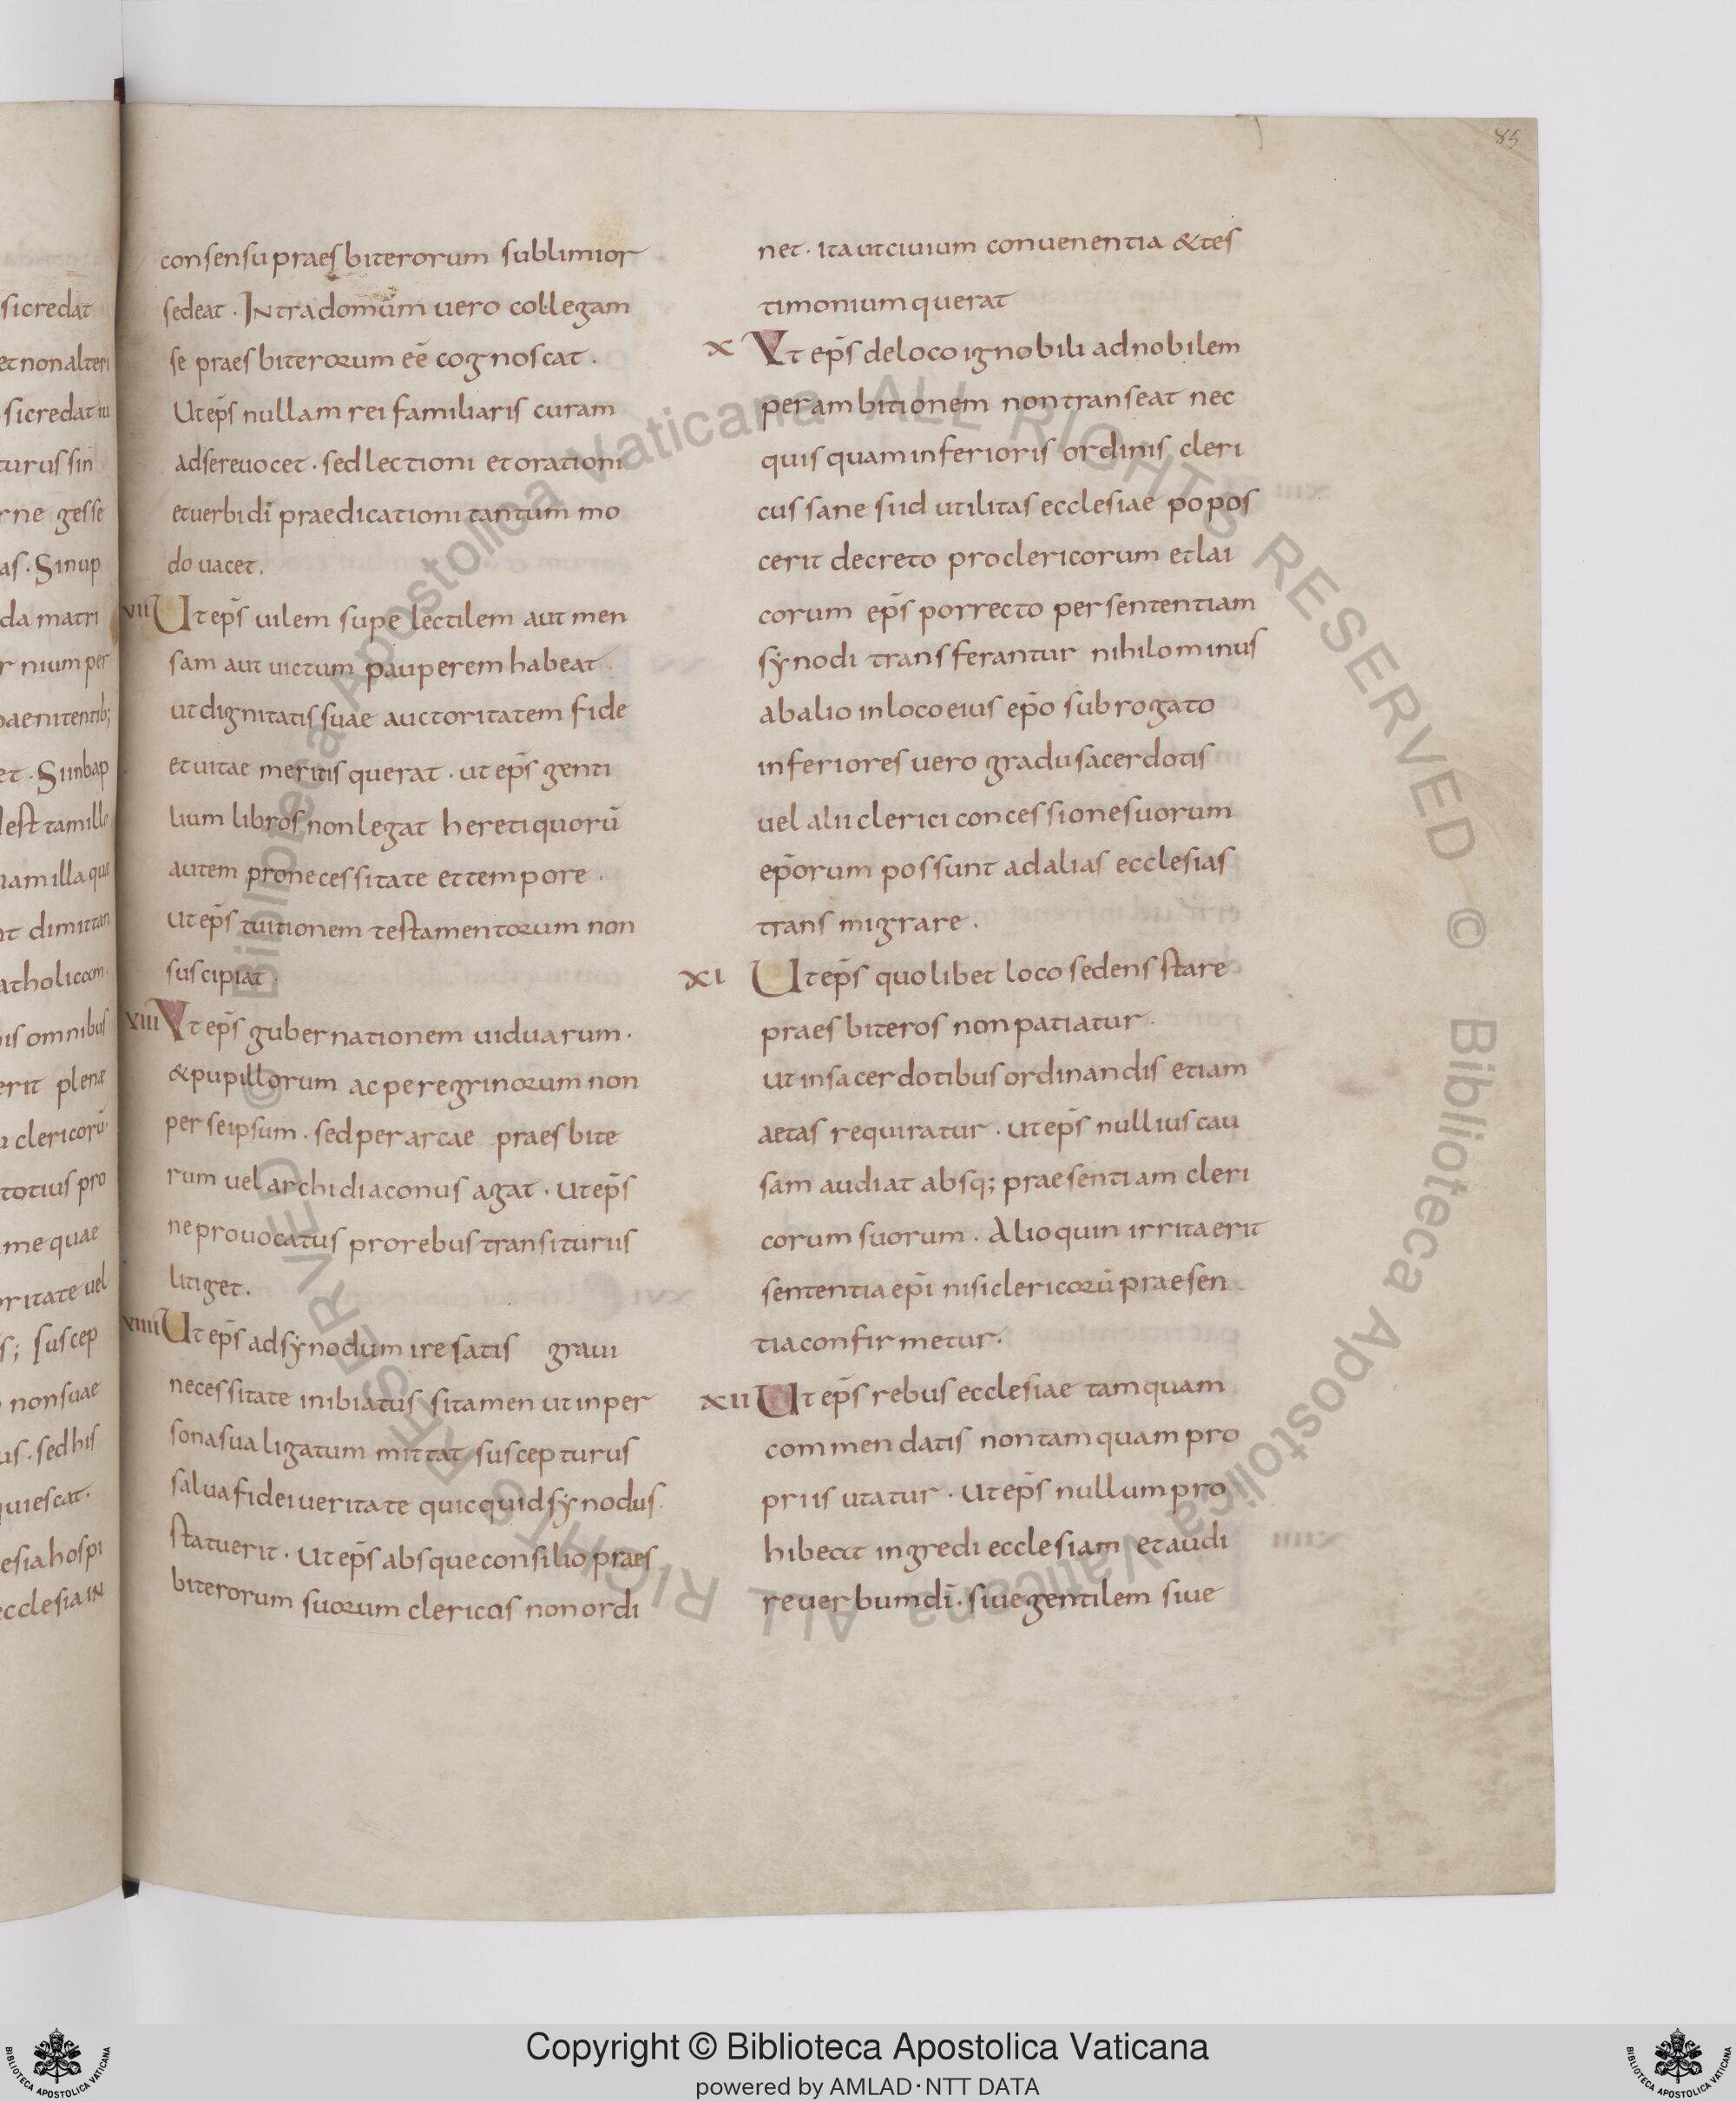 sicredat
et non alteri
sicredat
turus sin
rne gesse
as. Sin up
da matri
r nium per
paenitentib;
et. Siinbap
lest tamille
nam illa que
nt dimittan
atholicam.
is omnibus
erit plenae
a clericorū
totius pro
me quae
oritate uel
s; suscep
nonsuae
us. sed his
quiescat.
esia hospi
ecclesia IN
85
consensu praesbiterorum sublimior
sedeat. Intra domum uero collegam
se praesbiterorum eē cognoscat.
Ut ep̄s nullam rei familiaris curam
ad sereuocet. sed lectioni et orationi
et uerbi dī praedicationi tantum mo
do uacet.
VII Ut ep̄s uilem supelectilem aut men
sam aut uictum pauperem habeat.
ut dignitatis suae auctoritatem fide
et uitae meritis querat. ut ep̄s genti
lium libros non legat heretiquorū
autem pro necessitate et tempore.
Ut ep̄s tuitionem testamentorum non
suscipiat.
XIII Ut ep̄s gubernationem uiduarum.
& pupillorum ac peregrinorum non
per seipsum. sed per arcae praesbite
rum uel archidiaconus agat. Ut ep̄s
ne prouocatus pro rebus transituriis
litiget.
XIIII Ut ep̄s ad synodum ire satis graui
necessitate inibiatus sitamen ut in per
sona sua ligatum mittat suscepturus
salua fidei ueritate quicquid synodus.
statuerit. Ut ep̄s absque consilio praes
biterorum suorum clericos non ordi
net. ita ut ciuium conuenentia & tes
timonium querat
X Ut ep̄s de loco ignobili ad nobilem
per ambitionem non transeat nec
quisquam inferioris ordinis cleri
cus sane siid utilitas ecclesiae popos
cerit decreto pro clericorum et lai
corum ep̄s porrecto per sententiam
synodi transferantur nihilominus
ab alio in loco eius ep̄o subrogato
inferiores uero gradu sacerdotis
uel alii clerici concessione suorum
ep̄orum possunt ad alias ecclesias
transmigrare.
XI Ut ep̄s quolibet loco sedens stare
praesbiteros non patiatur.
Ut in sacerdotibus ordinandis etiam
aetas requiratur. Ut ep̄s nullius cau
sam audiat absq; praesentiam cleri
corum suorum. Alioquin irrita erit
sententia ep̄i nisi clericorū praesen
tia confirmetur.
XII Ut ep̄s rebus ecclesiae tamquam
commendatis non tamquam pro
priis utatur. Ut ep̄s nullum pro
hibeat ingredi ecclesiam et audi
re uerbum dī. siue gentilem siue
© Biblioteca Apostolica Vaticana ALL RIGHTS RESERVED © Biblioteca Apostolica Vaticana ALL RIGHTS RESERVED
Copyright © Biblioteca Apostolica Vaticana
powered by AMLAD·NTT DATA
BIBLIOTECA APOSTOLICA VATICANA
BIBLIOTECA APOSTOLICA VATICANA